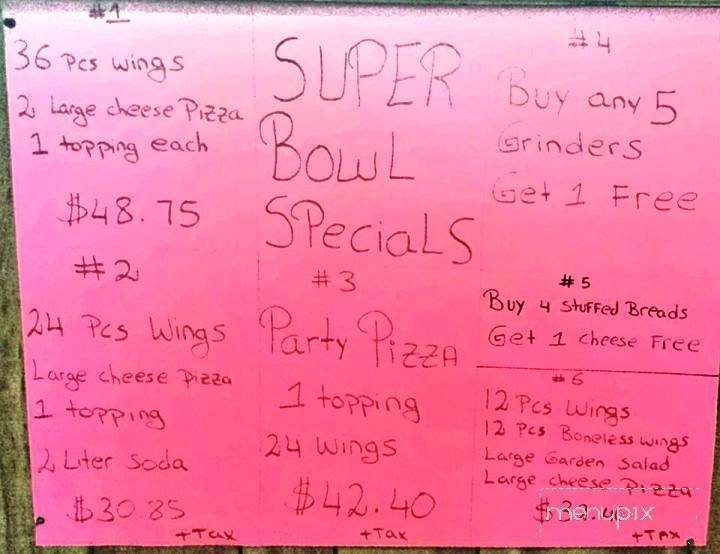 #1
36 Pcs wings
2 Large cheese Pizza
1 topping each
$48.75
#2
24 Pcs Wings
Large cheese Pizza
1 topping
2 Liter Soda
$30.85
+Tax
SUPER
BOWL
SPeciaLS
#3
Party PiZZA
1 topping
24 wings
$42.40
+Tax
#4
Buy any 5
Grinders
Get 1 Free
#5
Buy 4 Stuffed Breads
Get 1 cheese Free
#6
12 Pcs Wings
12 Pcs Boneless wings
Large Garden Salad
Large cheese Pizza
+Tax
menupix